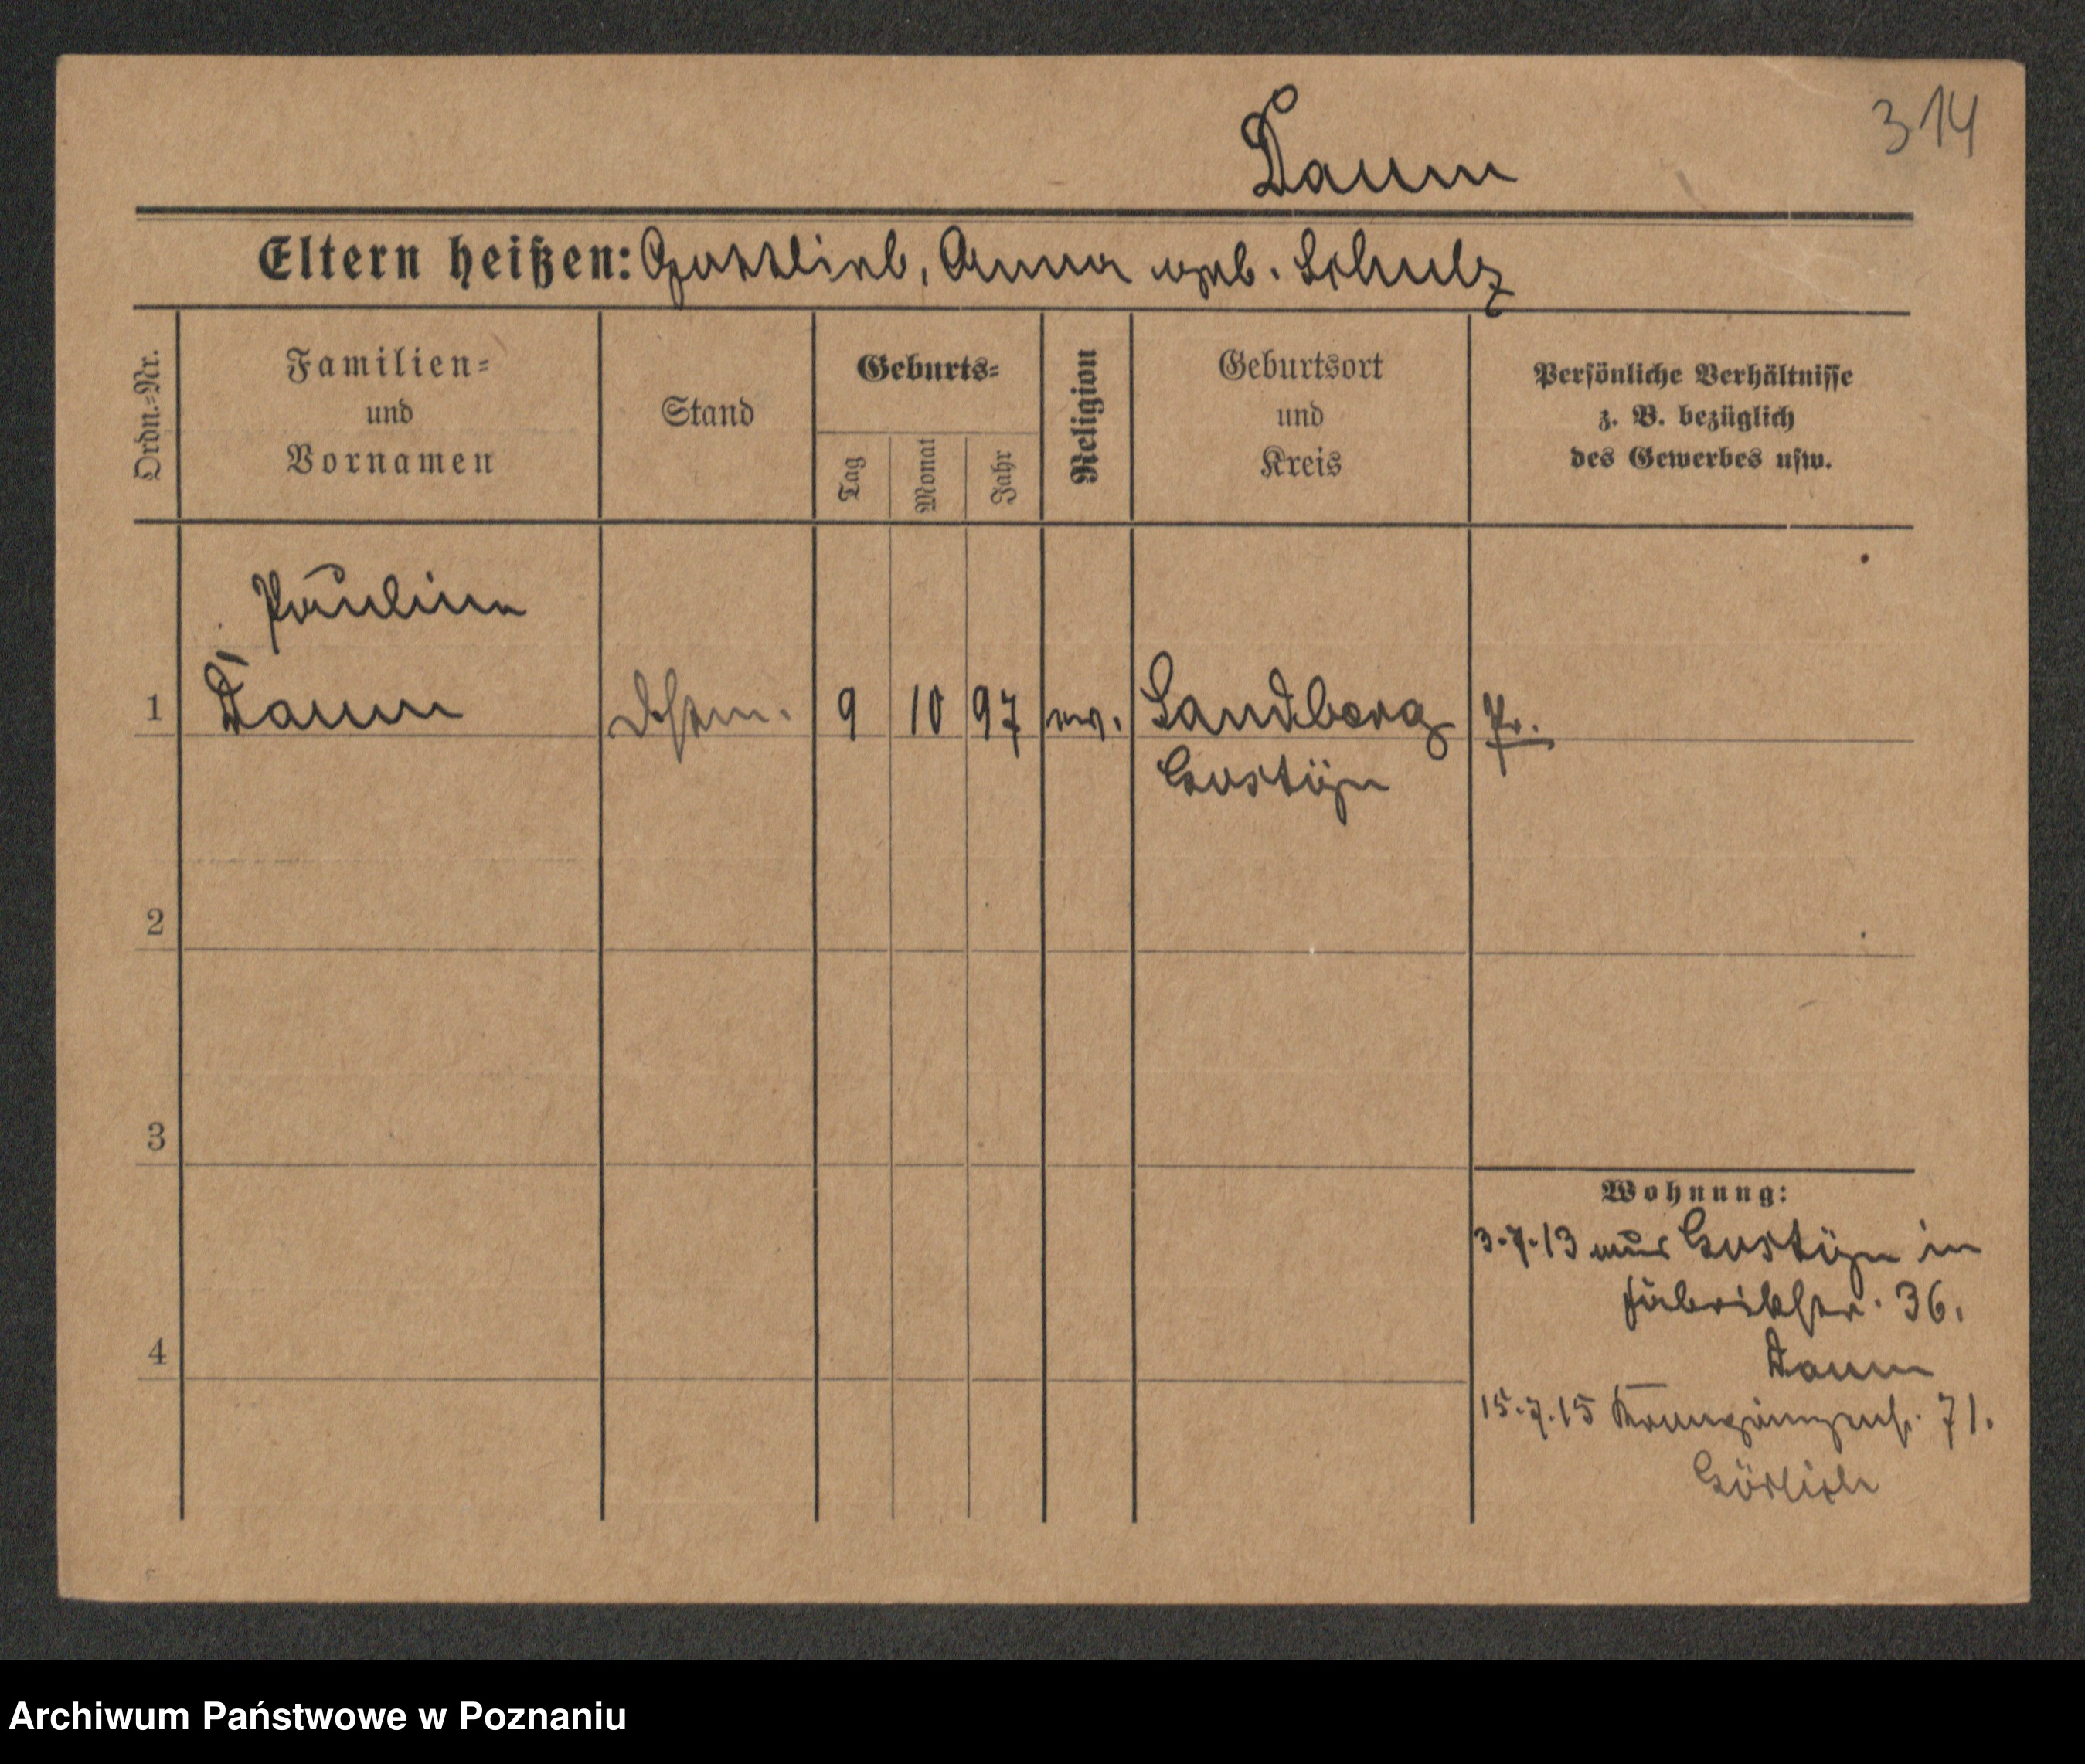 314
Daum
Eltern heißen: Gottlieb, Anna geb. Schulz
Ordn.-Nr.
Familien-
und
Vornamen
Stand
Geburts-
Tag
Monat
Jahr
Religion
Geburtsort
und
Kreis
Persönliche Verhältnisse
z. B. bezüglich
des Gewerbes usw.
Pauline
1 Daum 9 10 97 ev. Sandberg Pr.
Gostÿn
2
3
4
Wohnung:
3.7.13 aus Gostÿn in
Fabrikstr. 36.
Daum
15.7.15 71.
Görlich
Archiwum Państwowe w Poznaniu